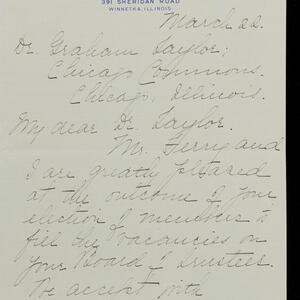 391 SHERIDAN ROAD
WINNETKA, ILLINOIS
March 22.
Dr. Graham Taylor;
Chicago Commons.
Chicago, Illinois.
My dear Dr. Taylor.
Mr. Ferry and
I are greatly pleased
at the outcome of your
election of members to
fill the vacancies on
your Board of Trustees.
We accept with